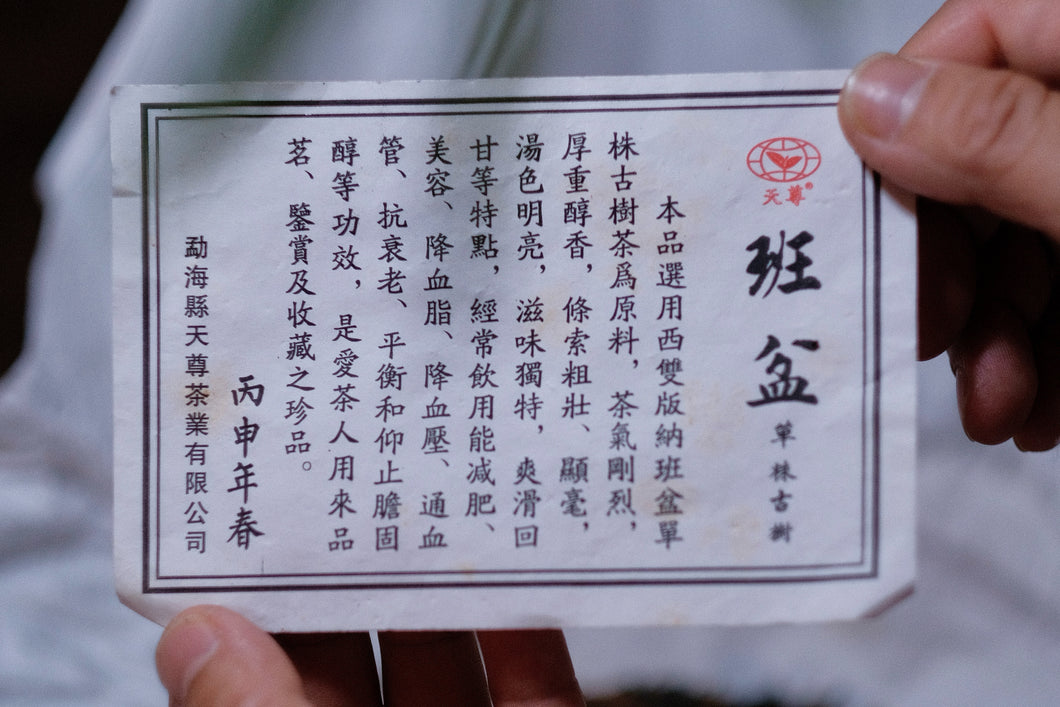 天尊®
班盆
单株古樹
本品選用西雙版納班盆單
株古樹茶爲原料，茶氣剛烈，
厚重醇香，條索粗壯、顯毫，
湯色明亮，滋味獨特，爽滑回
甘等特點，經常飲用能减肥、
美容、降血脂、降血壓、通血
管、抗衰老、平衡和仰止膽固
醇等功效，是愛茶人用來品
茗、鑒賞及收藏之珍品。
丙申年春
勐海縣天尊茶業有限公司